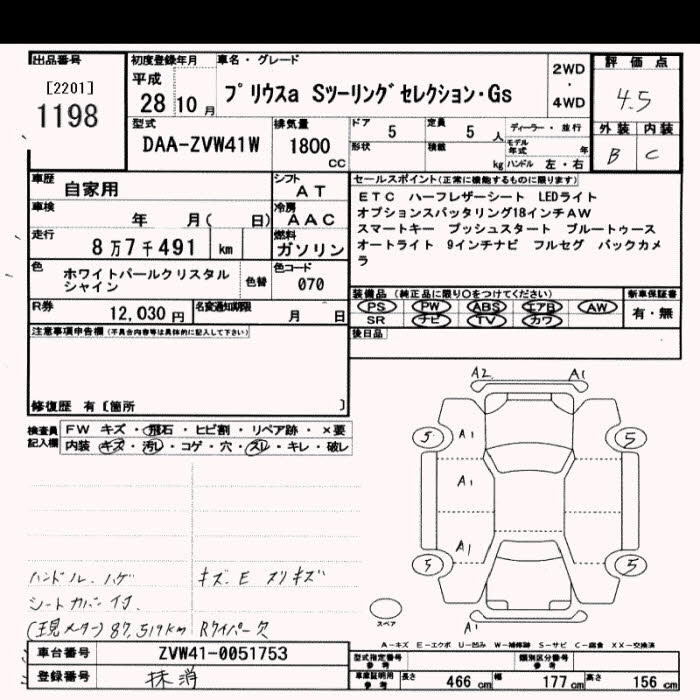 出品番号
[2201]
1198
初度登録年月
平成
28年10月
車名・グレード
プリウスa Sツーリングセレクション・Gs
2WD
・
4WD
評価点
4.5
外装 内装
B C
型式
DAA-ZVW41W
排気量
1800
CC
ドア
5
形状
定員
5 人
積載
kg
ディーラー・並行
モデル年式 年
ハンドル 左・右
車歴
自家用
シフト
AT
車検
年 月( 日)
冷房
AAC
走行
8万7千491 km
燃料
ガソリン
色
ホワイトパールクリスタル
シャイン
色替
色コード
070
R券
12,030円
名変通知期限
月 日
セールスポイント(正常に機能するものに限ります)
ETC ハーフレザーシート LEDライト
オプションスパッタリング18インチAW
スマートキー プッシュスタート ブルートゥース
オートライト 9インチナビ フルセグ バックカメ
ラ
装備品 (純正品に限り○をつけてください)
PS PW ABS エアB AW
SR ナビ TV カワ
新車保証書
有・無
後日品
注意事項申告欄(不具合内容等は具体的に記入して下さい)
修復歴 有 [箇所 ]
検査員
記入欄
FW キズ・飛石・ヒビ割・リペア跡・×要
内装 キズ・汚レ・コゲ・穴・スレ・キレ・破レ
A2 A1
5 A1 5
A1
A1
5 5
A1
スペア
ハンドル.ハゲ キズ.E スリキズ
シートカバー付.
(現メーター) 87,519km Rワイパー欠
A-キズ E-エクボ U-凹み W-補修跡 S-サビ C-腐食 XX-交換済
車台番号
ZVW41-0051753
登録番号
抹消
型式指定番号
参考
類別区分番号
参考
車庫証明用
参考
長さ 466 cm 幅 177 cm 高さ 156 cm